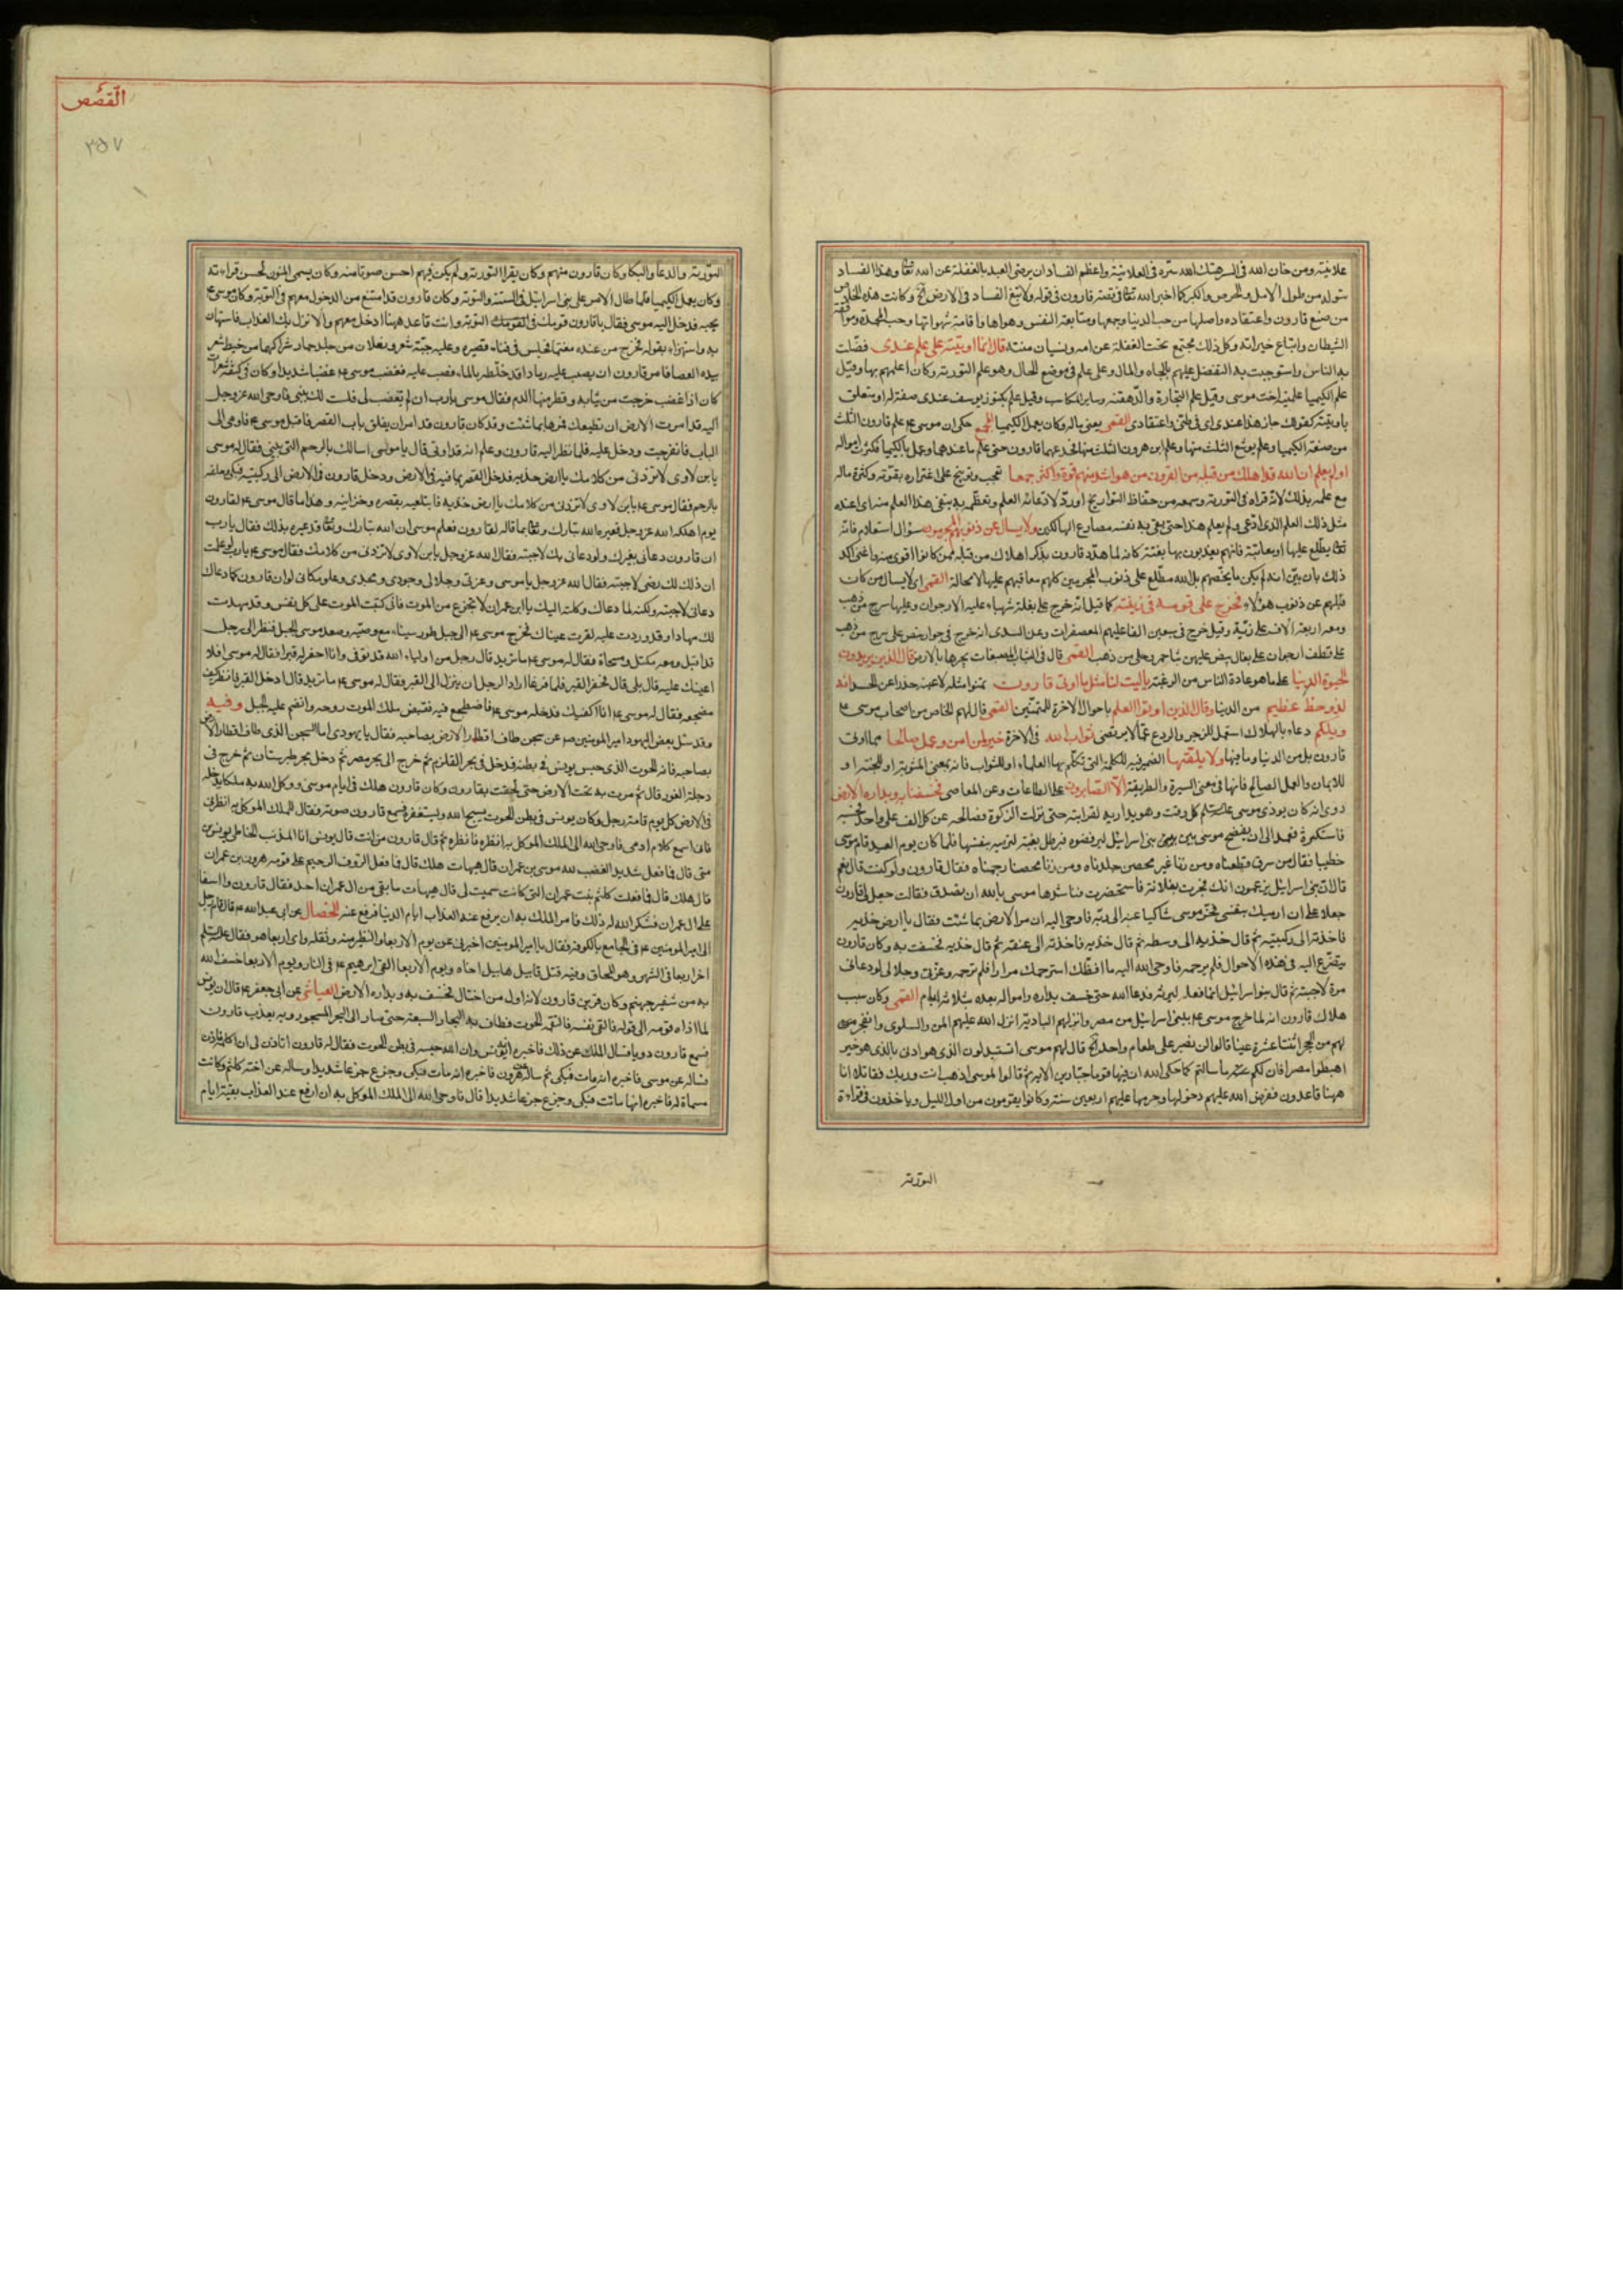 علانيته ومن خان الله في السر هتك الله ستره في العلانية واعظم الفساد ان يرضى العبد بالغفلة عن الله تعا وهذا الفساد
يتولد من طول الامل والحرص والكبر كما اخبر الله تعا في قصة قارون في قوله ولا تبغ الفساد في الارض وكانت هذه الخصال
من صنع قارون واعتقاده واصلها من حب الدنيا وجمعها ومتابعة النفس وهواها واقامة شهواتها وحب المحمدة وموافقة
الشيطان واتباع خطراته وكل ذلك مجتمع تحت الغفلة عن الله ونسيان مننه قال انما اوتيته على علم عندى فضلت
به الناس واستوجبت به التفضل عليهم بالجاه والمال وعلى علم في موضع الحال وهو علم التورية وكان اعلمهم بها وقيل
علم الكيميا علمته اخت موسى وقيل علم التجارة والدهقنة وساير المكاسب وقيل علم بكنوز يوسف عندى صفة له او متعلق
باوتيته كقولك جاز هذا عندى اى في ظنى واعتقادى القمى يعنى ماله وكان يعمل الكيميا المجمع حكى ان موسى ع علم قارون الثلث
من صنعة الكيميا وعلم يوشع الثلث منها وعلم ابن هرون الثلث منها فخدعهما قارون حتى علم ما عندهما وعمل بالكيميا فكثرت امواله
او لم يعلم ان الله قد اهلك من قبله من القرون من هو اشد منه قوة واكثر جمعا تعجب وتوبيخ على اغتراره بقوته وكثرة ماله
مع علمه بذلك لانه قراه في التورية وسمعه من حفاظ التواريخ او رد لادعائه العلم وتعظمه به بنفى هذا العلم منه اى اعنده
مثل ذلك العلم الذى ادعى ولم يعلم هذا حتى يقى به نفسه مصارع الهالكين ولا يسال عن ذنوبهم المجرمون سؤال استعلام فانه
تعا يطلع عليها او معاتبة فانهم يعذبون بها بغتة كانه لما هدد قارون بذكر اهلاك من قبله ممن كانوا اقوى منه واغنى اكد
ذلك بان بين انه لم يكن مما يخصهم بل الله مطلع على ذنوب المجرمين كلهم معاقبهم عليها لا محالة القمى اى لا يسال من كان
قبلهم عن ذنوب هؤلاء فخرج على قومه في زينته كما قيل انه خرج على بغلة شهباء عليه الارجوان وعليها سرج من ذهب
ومعه اربعة آلاف على زيه وقيل خرج في سبعين الفا عليهم المعصفرات وعن السدى انه خرج في جوار بيض على سرج من ذهب
على قطف ارجوان على بغال بيض عليهن ثياب حمر وحلى من ذهب القمى قال في الثياب المصبغات يجرها بالارض قال الذين يريدون
الحيوة الدنيا على ما هو عادة الناس من الرغبة يا ليت لنا مثل ما اوتى قارون تمنوا مثله لا عينه حذرا عن الحسد انه
لذو حظ عظيم من الدنيا وقال الذين اوتوا العلم باحوال الاخرة للمتمنين القمى قال لهم الخاص من اصحاب موسى ع
ويلكم دعاء بالهلاك استعمل للزجر والردع عما لا يرتضى ثواب الله في الاخرة خير لمن امن وعمل صالحا مما اوتى
قارون بل من الدنيا وما فيها ولا يلقيها الضمير فيه للكلمة التى تكلم بها العلماء او للثواب فانه بمعنى المثوبة او للجنة او
للايمان والعمل الصالح فانها في معنى السيرة والطريقة الا الصابرون على الطاعات وعن المعاصى فخسفنا به وبداره الارض
روى انه كان يوذى موسى عليه السلم كل وقت وهو يداريه لقرابته حتى نزلت الزكوة فصالحه عن كل الف على واحد فحسبه
فاستكثره فعمد الى ان يفضح موسى بين بنى اسرائيل ليرفضوه فبرطل بغية لترميه بنفسها فلما كان يوم العيد قام موسى
خطيبا فقال من سرق قطعناه ومن زنا غير محصن جلدناه ومن زنا محصنا رجمناه فقال قارون ولو كنت قال نعم
قال ان بنى اسرائيل يزعمون انك فجرت بفلانة فاستحضرت فناشدها موسى بالله ان تصدق فقالت جعل لى قارون
جعلا على ان ارميك بنفسى فخر موسى شاكيا عنه الى ربه فاوحى اليه ان مر الارض بما شئت فقال يا ارض خذيه
فاخذته الى ركبتيه ثم قال خذيه الى وسطه ثم قال خذيه فاخذته الى عنقه ثم قال خذيه فخسفت به وكان قارون
يتضرع اليه في هذه الاحوال فلم يرحمه فاوحى الله اليه ما افظك استرحمك مرارا فلم ترحمه وعزتى وجلالى لو دعانى
مرة لاجبته ثم قال بنو اسرائيل انما فعله ليرثه فدعا الله حتى خسف بداره وامواله بعده بثلاثة ايام القمى وكان سبب
هلاك قارون انه لما خرج موسى ع ببنى اسرائيل من مصر وانزلهم البادية انزل الله عليهم المن والسلوى وانفجر
لهم من الحجر اثنتا عشرة عينا قالوا لن نصبر على طعام واحد قال لهم موسى اتستبدلون الذى هو ادنى بالذى هو خير
اهبطوا مصرا فان لكم ما سالتم كما حكى الله ان فيها قوما جبارين الاية ثم قالوا لموسى اذهب انت وربك فقاتلا انا
ههنا قاعدون ففرض الله عليهم دخولها وحرمها عليهم اربعين سنة وكانوا يقومون من اول الليل وياخذون في قراءة
التورية
القصص
٢٥٧
التورية والدعا والبكا وكان قارون منهم وكان يقرا التورية ولم يكن فيهم احسن صوتا منه وكان يسمى المنون لحسن قراءته
وكان يعمل الكيميا فلما طال الامر على بنى اسرائيل في التيه والتوبة وكان قارون قد امتنع من الدخول معهم في التوبة وكان موسى ع
يحبه فدخل اليه موسى فقال يا قارون قومك في التوبة وانت قاعد ههنا ادخل معهم والا نزل بك العذاب فاستهان
به واستهزاء بقوله فخرج من عنده مغتما فجلس في فناء قصره وعليه جبة شعر ونعلان من جلد حمار شراكهما من خيط شعر
بيده العصا فامر قارون ان يصب عليه رمادا قد خلطه بالماء فصب عليه فغضب موسى ع غضبا شديدا وكان في كتفه شعرات
كان اذا غضب خرجت من ثيابه وقطر منها الدم فقال موسى يا رب ان لم تغضب لى فلست لك بنبى فاوحى الله عز وجل
اليه قد امرت الارض ان تطيعك فمرها بما شئت وقد كان قارون قد امر ان يغلق باب القصر فاقبل موسى ع فاومى الى
الباب فانفرجت ودخل عليه فلما نظر اليه قارون وعلم انه قد اوتى قال يا موسى اسالك بالرحم التى بينى فقال له موسى
يا بن لاوى لا تزدنى من كلامك يا ارض خذيه فدخل القصر بما فيه في الارض ودخل قارون في الارض الى ركبتيه فبكى وحلفه
بالرحم فقال موسى ع يا بن لاوى لا تزدنى من كلامك يا ارض خذيه فابتلعيه بقصره وخزاينه وهذا ما قال موسى ع لقارون
يوم اهلكه الله عز وجل فعيره الله تبارك وتعا بما قاله لقارون فعلم موسى ان الله تبارك وتعا قد عيره بذلك فقال يا رب
ان قارون دعانى بغيرك ولو دعانى بك لاجبته فقال الله عز وجل يا بن لاوى لا تزدنى من كلامك فقال موسى ع يا رب لو علمت
ان ذلك لك رضى لاجبته فقال الله عز وجل يا موسى وعزتى وجلالى وجودى ومجدى وعلو مكانى لو ان قارون كما دعاك
دعانى لاجبته ولكنه لما دعاك وكلته اليك يا ابن عمران لا تجزع من الموت فانى كتبت الموت على كل نفس وقد مهدت
لك مهادا لو قد وردت عليه لقرت عيناك فخرج موسى ع الى جبل طور سيناء مع وصيه وصعد موسى الجبل فنظر الى رجل
قد اقبل ومعه مكتل ومسحاة فقال له موسى ع ما تريد قال رجل من اولياء الله قد توفى وانا احفر له قبرا فقال له موسى افلا
اعينك عليه قال بلى قال فحفر القبر فلما فرغا اراد الرجل ان ينزل الى القبر فقال له موسى ع ما تريد قال ادخل القبر فانظر كيف
مضجعه فقال له موسى ع انا اكفيك فدخله موسى ع فاضطجع فيه فقبض ملك الموت روحه وانضم عليه الجبل وفيه
وقد سئل بعض اليهود امير المومنين ص عن سجن طاف اقطار الارض بصاحبه فقال يا يهودى اما السجن الذى طاف اقطار الارض
بصاحبه فانه الحوت الذى حبس يونس في بطنه فدخل في بحر القلزم ثم خرج الى بحر مصر ثم دخل بحر طبرستان ثم خرج في
دجلة الغور قال ثم مرت به تحت الارض حتى لحقت بقارون وكان قارون هلك في ايام موسى ووكل الله به ملكا يدخله
في الارض كل يوم قامة رجل وكان يونس في بطن الحوت يسبح الله ويستغفره فسمع قارون صوته فقال للملك الموكل به انظرنى
فانى اسمع كلام ادمى فاوحى الله الى الملك الموكل به انظره فانظره ثم قال قارون من انت قال يونس انا المذنب الخاطى يونس بن
متى قال فما فعل شديد الغضب لله موسى بن عمران قال هيهات هلك قال فما فعل الرؤف الرحيم على قومه هرون بن عمران
قال هلك قال فما فعلت كلثم بنت عمران التى كانت سميت لى قال هيهات ما بقى من ال عمران احد فقال قارون وا اسفا
على ال عمران فشكر الله له ذلك فامر الملك به ان يرفع عنه العذاب ايام الدنيا فرفع عنه الخصال عن ابى عبد الله ع قال قام رجل
الى امير المومنين ع في الجامع بالكوفة فقال يا امير المومنين اخبرنى عن يوم الاربعا والتطير منه وثقله واى اربعا هو فقال عليه السلم
اخر اربعا في الشهر وهو المحاق وفيه قتل قابيل هابيل اخاه ويوم الاربعا القى ابرهيم ع في النار ويوم الاربعا خسف الله
به من شفير جهنم وكان قرين قارون لانه اول من اختال فخسف به وبداره الارض العياشى عن ابى جعفر ع قال ان يونس
لما اذاه قومه الى قوله فالقى نفسه فالتقمه الحوت فطاف به البحار السبعة حتى صار الى البحر المسجور وبه يعذب قارون
فسمع قارون دويا فسال الملك عن ذلك فاخبره انه يونس وان الله حبسه في بطن الحوت فقال له قارون اتاذن لى ان اكلمه فاذن
فساله عن موسى فاخبره انه مات فبكى ثم ساله عن هرون فاخبره انه مات فبكى وجزع جزعا شديدا وساله عن اخته كلثم وكانت
مسماة له فاخبره انها ماتت فبكى وجزع جزعا شديدا قال فاوحى الله الى الملك الموكل به ان ارفع عنه العذاب بقية ايام